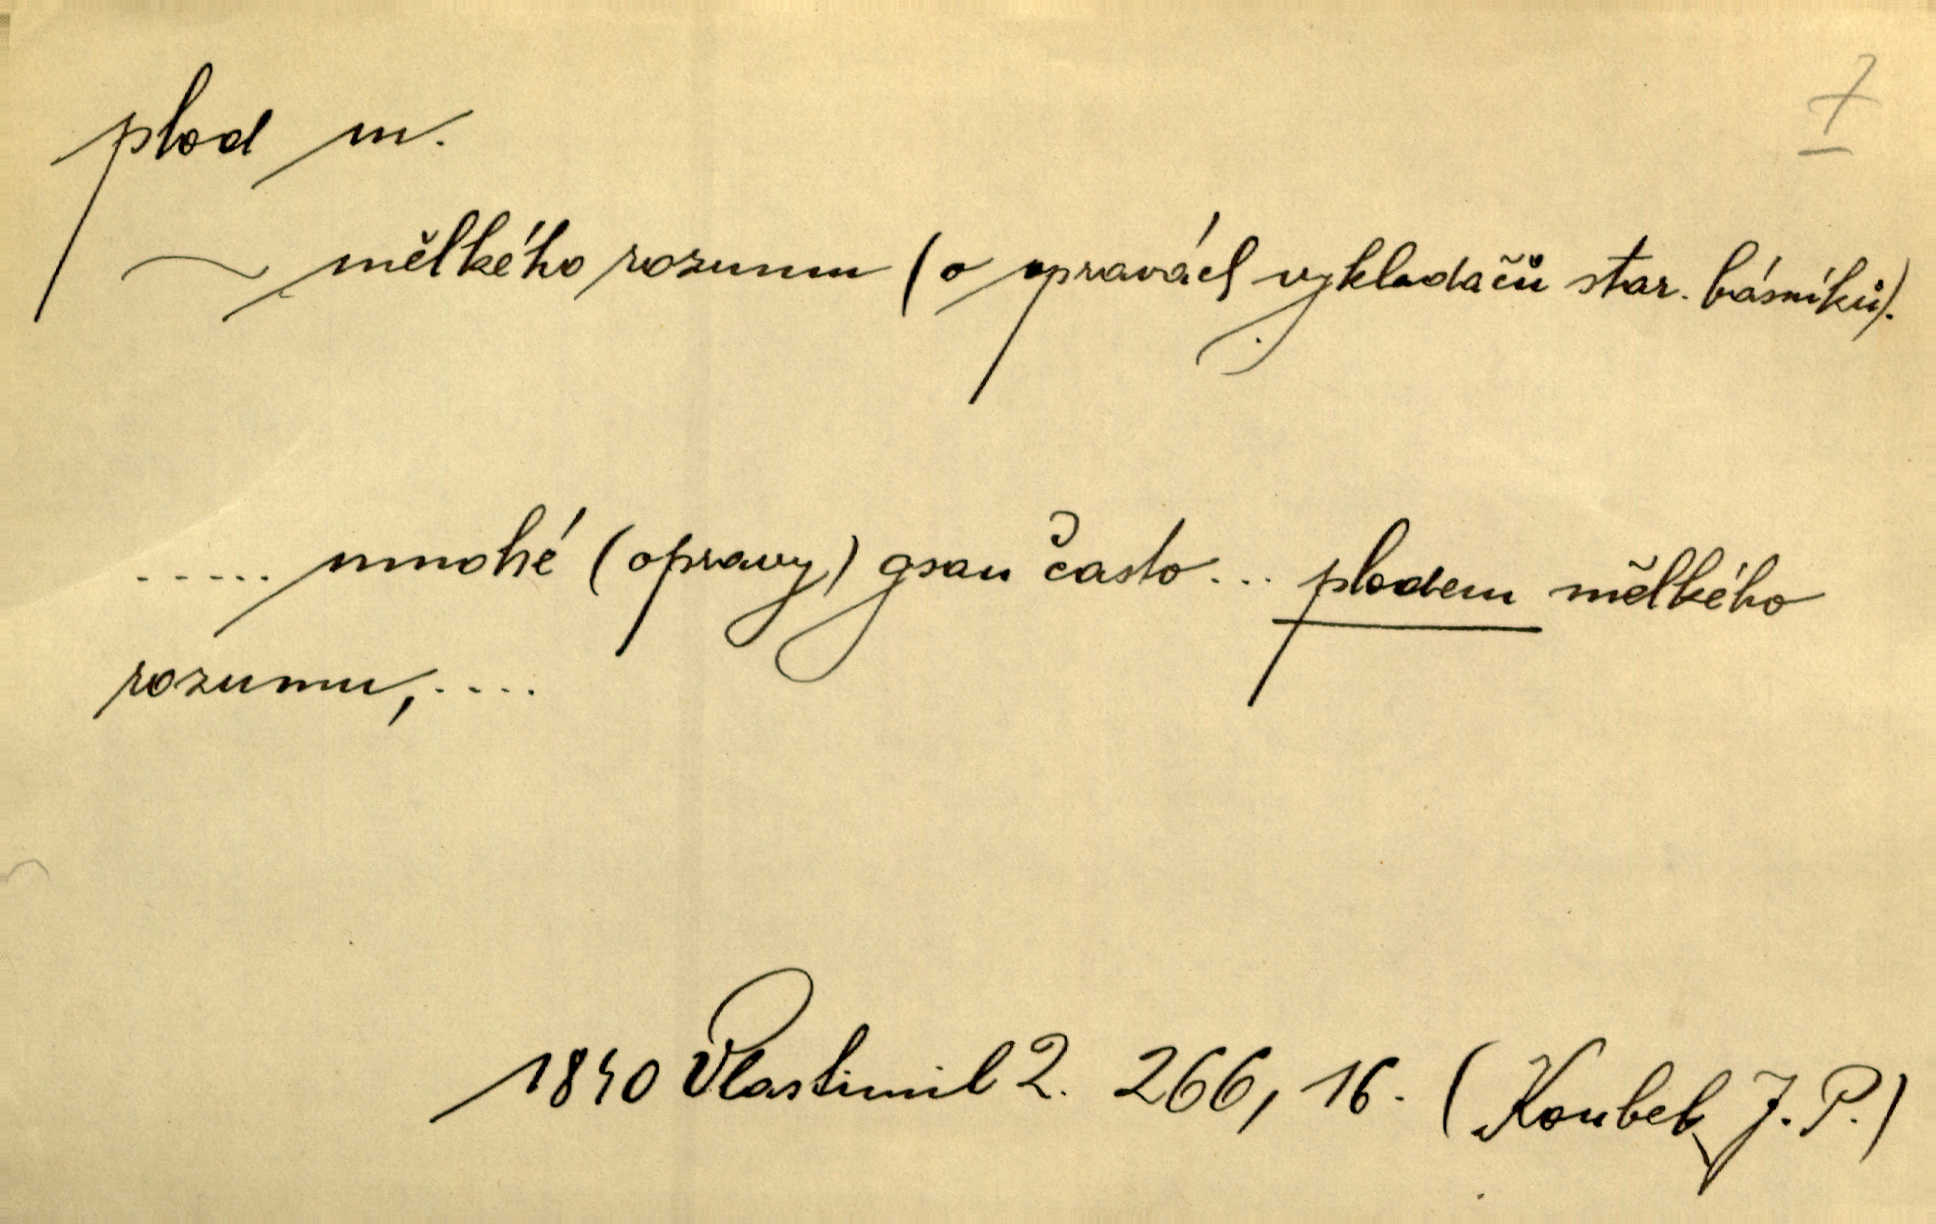 7
plod m.
~ mělkého rozumu (o opravách vykladačů star. básníků).
..... mnohé (opravy) gsau často... plodem mělkého
rozumu,....
1840 Vlastimil 2. 266, 16. (Koubek J. P.)